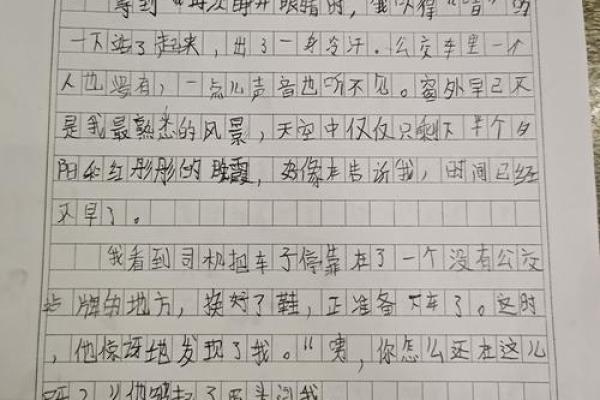 等到"再次睁开眼睛时,我"噌"的
一下站了起来,出了一身冷汗。公交车里一个
人也没有,一点儿声音也听不见。窗外早已不
是我最熟悉的风景,天空中仅仅只剩下半个夕
阳和红彤彤的晚霞,好像在告诉我,时间已经
不早了。
我看到司机把车子停靠在了一个没有公交
站牌的地方,换好了鞋,正准备下车了。这时
,他惊讶地发现了我。"嘿,你怎么还在这儿
呀?"他皱起了眉头问我